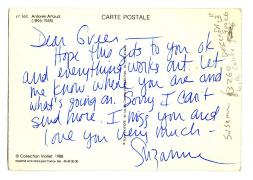 n° 168 Antonin Artaud
(1896-1948)
CARTE POSTALE
Dear
Hope this gets to you ok
and everything works out. Let
me know where you are and
what's going on. Sorry I can't
send more. I miss you and
love you very much -
Suzanne
© Collection Viollet 1988